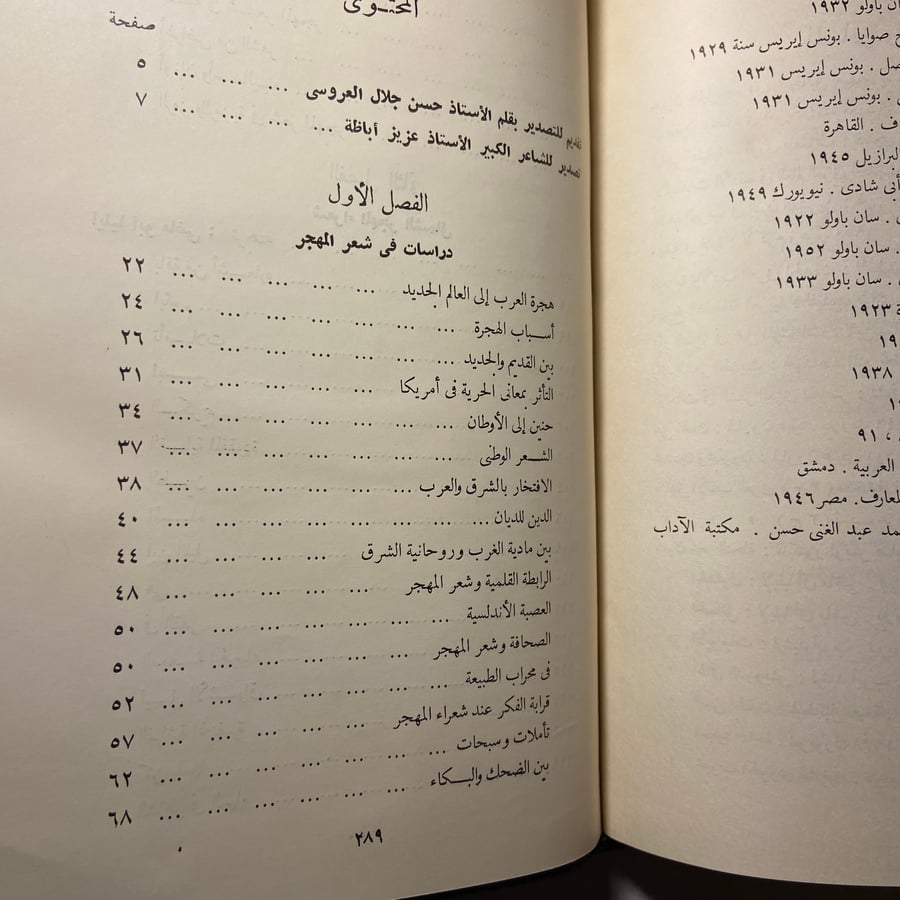 باولو ١٩٣٢
صوايا . بونس إيريس سنة ١٩٢٩
. بونس إيريس ١٩٣١
. بونس إيريس ١٩٣١
. القاهرة
البرازيل ١٩٤٥
أبى شادى . نيويورك ١٩٤٩
. سان باولو ١٩٢٢
. سان باولو ١٩٥٢
. سان باولو ١٩٣٣
١٩٢٣
١٩٣٨
، ٩١
العربية . دمشق
المعارف. مصر ١٩٤٦
عبد الغنى حسن . مكتبة الآداب
المحتوى
صفحة
تقديم للتصدير بقلم الأستاذ حسن جلال العروسى ... ... ... ٥
تصدير للشاعر الكبير الأستاذ عزيز أباظة ... ... ... ... ٧
الفصل الأول
دراسات فى شعر المهجر
هجرة العرب إلى العالم الجديد ... ... ... ... ... ٢٢
أسباب الهجرة ... ... ... ... ... ... ... ٢٤
بين القديم والجديد ... ... ... ... ... ... ... ٢٦
التأثر بمعانى الحرية فى أمريكا ... ... ... ... ... ٣١
حنين إلى الأوطان ... ... ... ... ... ... ... ٣٤
الشعر الوطنى ... ... ... ... ... ... ... ٣٧
الافتخار بالشرق والعرب ... ... ... ... ... ... ٣٨
الدين للديان ... ... ... ... ... ... ... ... ٤٠
بين مادية الغرب وروحانية الشرق ... ... ... ... ٤٤
الرابطة القلمية وشعر المهجر ... ... ... ... ... ٤٨
العصبة الأندلسية ... ... ... ... ... ... ... ٥٠
الصحافة وشعر المهجر ... ... ... ... ... ... ٥٠
فى محراب الطبيعة ... ... ... ... ... ... ... ٥٢
قرابة الفكر عند شعراء المهجر ... ... ... ... ... ٥٧
تأملات وسبحات ... ... ... ... ... ... ... ٦٢
بين الضحك والبكاء ... ... ... ... ... ... ٦٨
٢٨٩